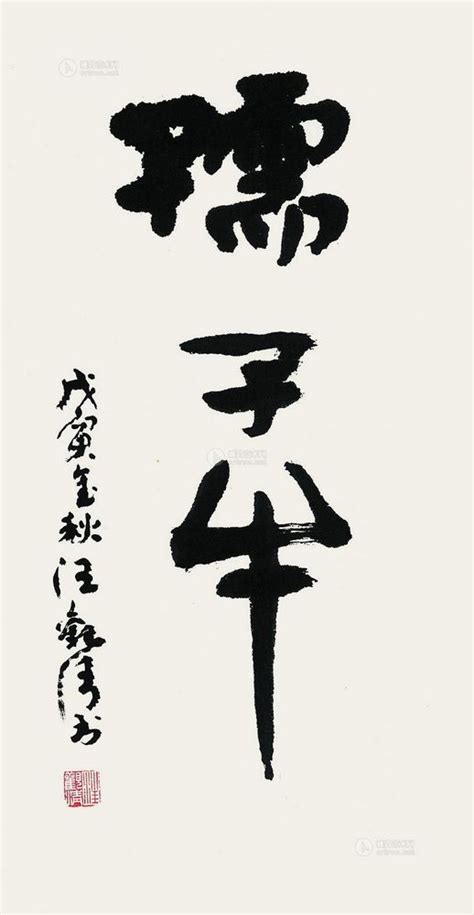 孺子牛
戊寅金秋汪觀清书